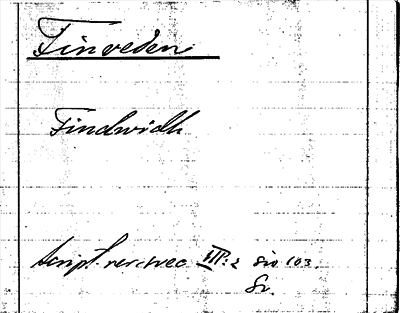 Finveden
Findwidh
Script. rer. svec III:2 sid 103.
Sv.